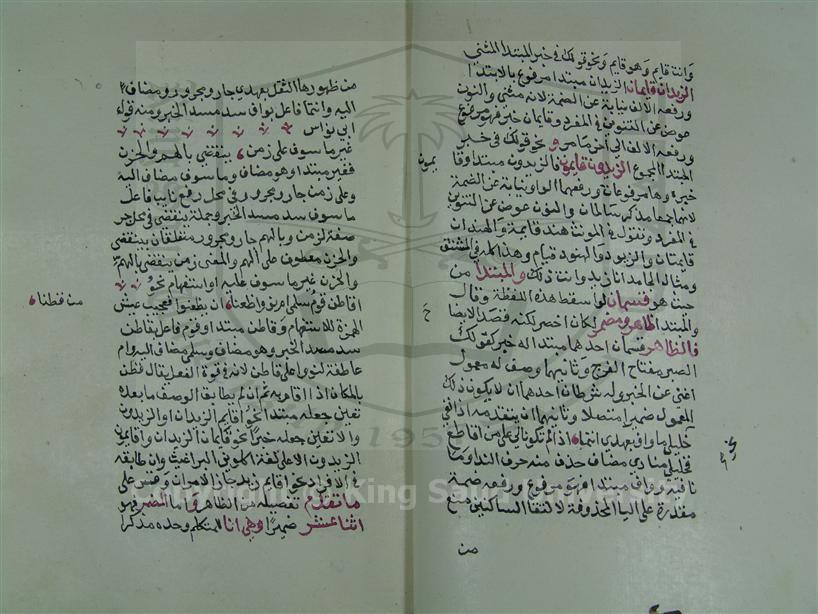 وانت قايم وهو قايم ونحو قولك في خبر المبتدا المثنى
الزيدان قايمان الزيدان مبتدا مرفوع بالابتدا
ورفعه الالف نيابة عن الضمة لانه مثنى والنون
عوض عن التنوين في المفرد وقايمان خبره مرفوع
ورفعه الالف الى اخر ما مر ونحو قولك في خبر
المبتدا المجموع الزيدون قايمون فالزيدون مبتدا وقا
يمون
خبره وهما مرفوعان ورفعهما الواو نيابة عن الضمة
لانهما جمعا مذكر سالمان والنون عوض عن التنوين
في المفرد وتقول في المونث هند قايمة والهندان
قايمتان والزيود والهنود قيام وهذا كله في المشتق
ومثال الجامد انا زيد وانت ذلك والمبتدا من
حيث هو قسمان لو اسقط هذه اللفظة وقال
والمبتدا ظاهر ومضمر لكان اخصر لكنه قصد الايضا
ح
فالظاهر قسمان احدهما مبتدا له خبر كقولك
الصبر مفتاح الفرج وثانيهما وصف له معمول
اغنى عن الخبر وله شرطان احدهما ان لا يكون ذلك
المعمول ضميرا متصلا وثانيهما ان يتقدمه اداة نفي
خليلي ما واف بعهدي انتما اذا لم تكونا لي على من اقاطع
فخليلي منادى مضاف حذف منه حرف الندا وما
نافية وواف مبتدا مرفوع ورفعه ضمة
مقدرة على اليا المحذوفة لالتقا الساكنين منع
من
من ظهورها الثقل بعهدي جار ومجرور ومضاف
اليه وانتما فاعل بواف سد مسد الخبر ومنه قول
ابي نواس
غير ماسوف على زمن ينقضي بالهم والحزن
فغير مبتدا وهو مضاف وماسوف مضاف اليه
وعلى زمن جار ومجرور في محل رفع نايب فاعل
ماسوف سد مسد الخبر وجملة ينقضي في محل جر
صفة لزمن وبالهم جار ومجرور متعلقان بينقضي
والحزن معطوف على الهم والمعنى زمن ينقضي بالهم
والحزن غير ماسوف عليه او استفهام نحو
اقاطن قوم سلمى ام نووا ظعنا ان يظعنوا فعجيب عيش
من قطنا
الهمزة للاستفهام وقاطن مبتدا وقوم فاعل بقاطن
سد مسد الخبر وهو مضاف وسلمى مضاف اليه وام
عاطفة لنووا على قاطن لانه في قوة الفعل يقال قطن
بالمكان اذا اقام به ثم ان لم يطابق الوصف ما بعده
تعين جعله مبتدا نحو اقايم الزيدان او الزيدون
والا تعين جعله خبرا نحو قايمان الزيدان واقايمون
الزيدون الا على لغة اكلوني البراغيث وان طابقه
في الافراد نحو اقايم زيد جاز الامران وقس على
ما تقدم تفصيله من الظاهر واما المضمر فهو
اثنا عشر ضميرا وهي انا للمتكلم وحده مذكرا